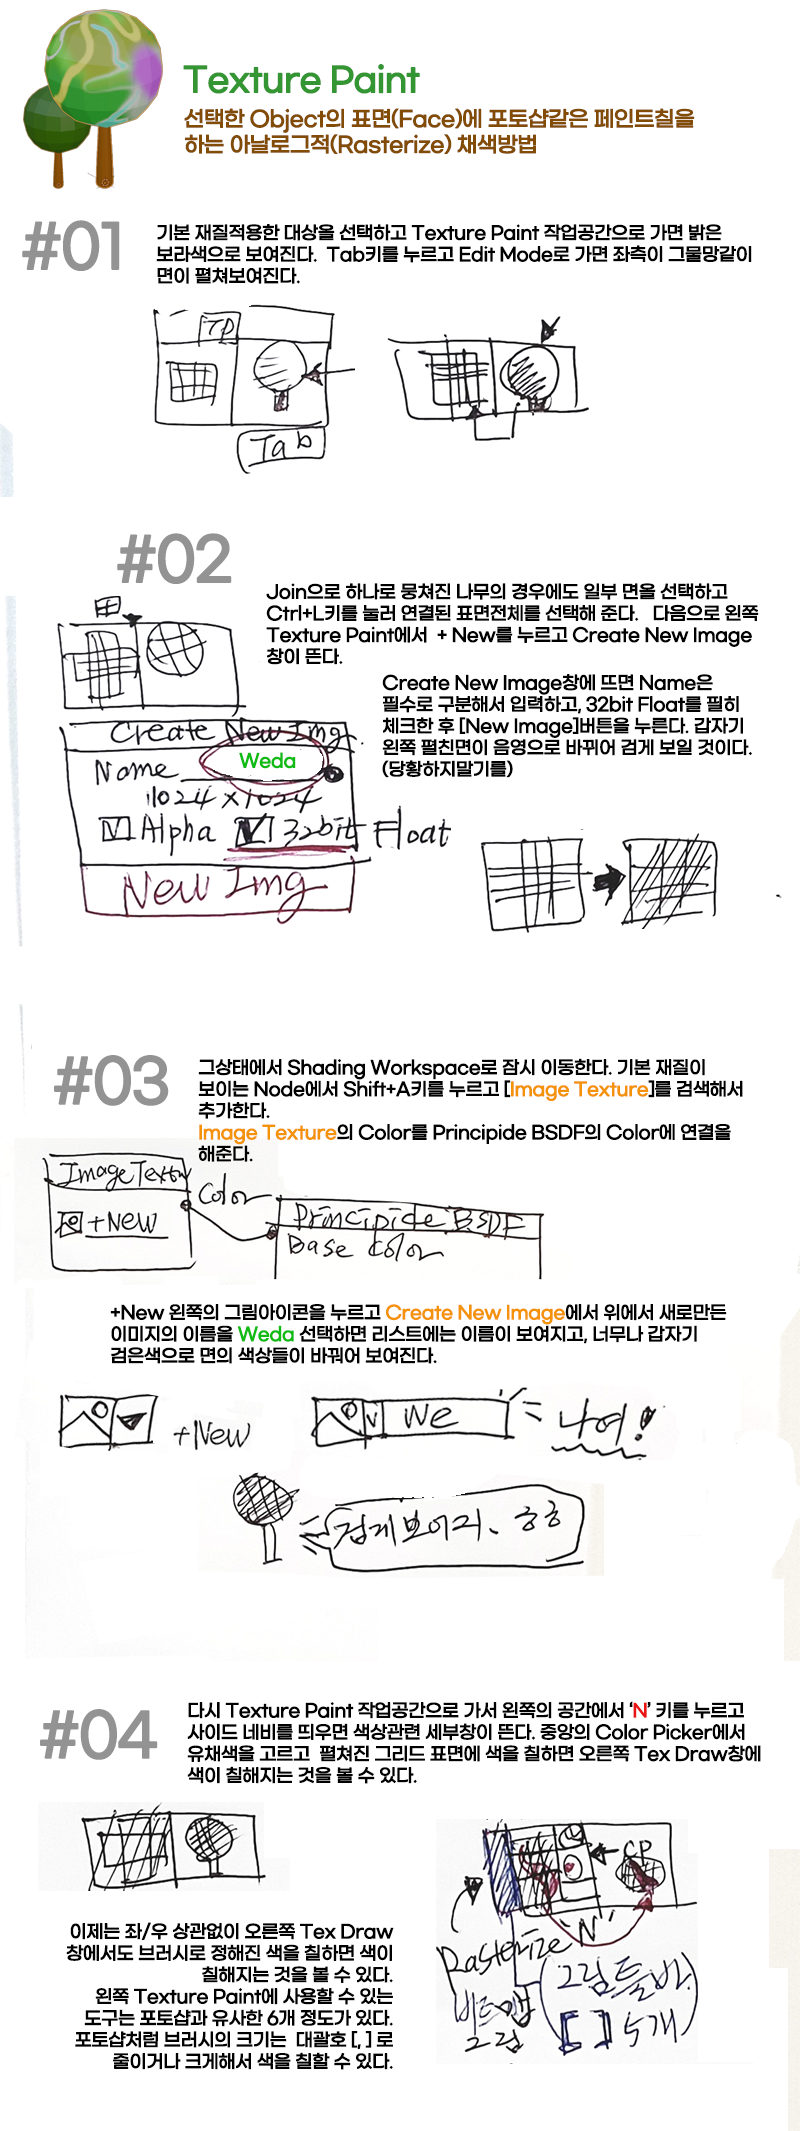 Texture Paint
선택한 Object의 표면(Face)에 포토샵같은 페인트칠을
하는 아날로그적(Rasterize) 채색방법
#01
기본 재질적용한 대상을 선택하고 Texture Paint 작업공간으로 가면 밝은
보라색으로 보여진다. Tab키를 누르고 Edit Mode로 가면 좌측이 그물망같이
면이 펼쳐보여진다.
TP
Tab
#02
Join으로 하나로 뭉쳐진 나무의 경우에도 일부 면을 선택하고
Ctrl+L키를 눌러 연결된 표면전체를 선택해 준다. 다음으로 왼쪽
Texture Paint에서 + New를 누르고 Create New Image
창이 뜬다.
Create New Image창에 뜨면 Name은
필수로 구분해서 입력하고, 32bit Float를 필히
체크한 후 [New Image]버튼을 누른다. 갑자기
왼쪽 펼친면이 음영으로 바뀌어 검게 보일 것이다.
(당황하지말기를)
Create New Img
Name Weda
1024 x 1024
Alpha 32bit Float
New Img
#03
그상태에서 Shading Workspace로 잠시 이동한다. 기본 재질이
보이는 Node에서 Shift+A키를 누르고 [Image Texture]를 검색해서
추가한다.
Image Texture의 Color를 Principide BSDF의 Color에 연결을
해준다.
Image Textu
Color
+New
Principide BSDF
Base Color
+New 왼쪽의 그림아이콘을 누르고 Create New Image에서 위에서 새로만든
이미지의 이름을 Weda 선택하면 리스트에는 이름이 보여지고, 너무나 갑자기
검은색으로 면의 색상들이 바꿔어 보여진다.
+New
We
나여!
검게보이지. ㅎㅎ
#04
다시 Texture Paint 작업공간으로 가서 왼쪽의 공간에서 ‘N’ 키를 누르고
사이드 네비를 띄우면 색상관련 세부창이 뜬다. 중앙의 Color Picker에서
유채색을 고르고 펼쳐진 그리드 표면에 색을 칠하면 오른쪽 Tex Draw창에
색이 칠해지는 것을 볼 수 있다.
CP
이제는 좌/우 상관없이 오른쪽 Tex Draw
창에서도 브러시로 정해진 색을 칠하면 색이
칠해지는 것을 볼 수 있다.
왼쪽 Texture Paint에 사용할 수 있는
도구는 포토샵과 유사한 6개 정도가 있다.
포토샵처럼 브러시의 크기는 대괄호 [, ] 로
줄이거나 크게해서 색을 칠할 수 있다.
Rasterize "N"
비트맵
그림
그림툴바
[ ] 5개